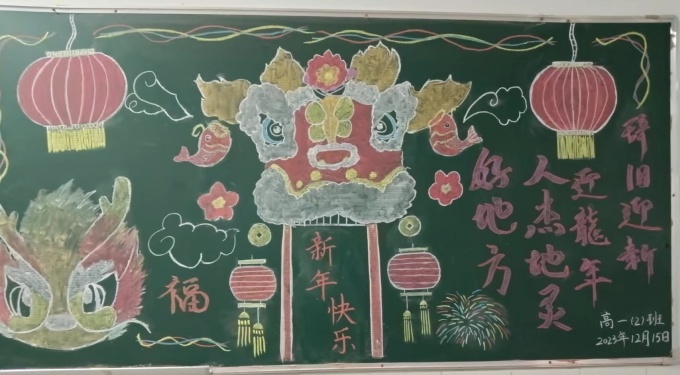 辞旧迎新
迎龍年
人杰地灵
好地方
新年快乐
福
高一(2)班
2023年12月15日